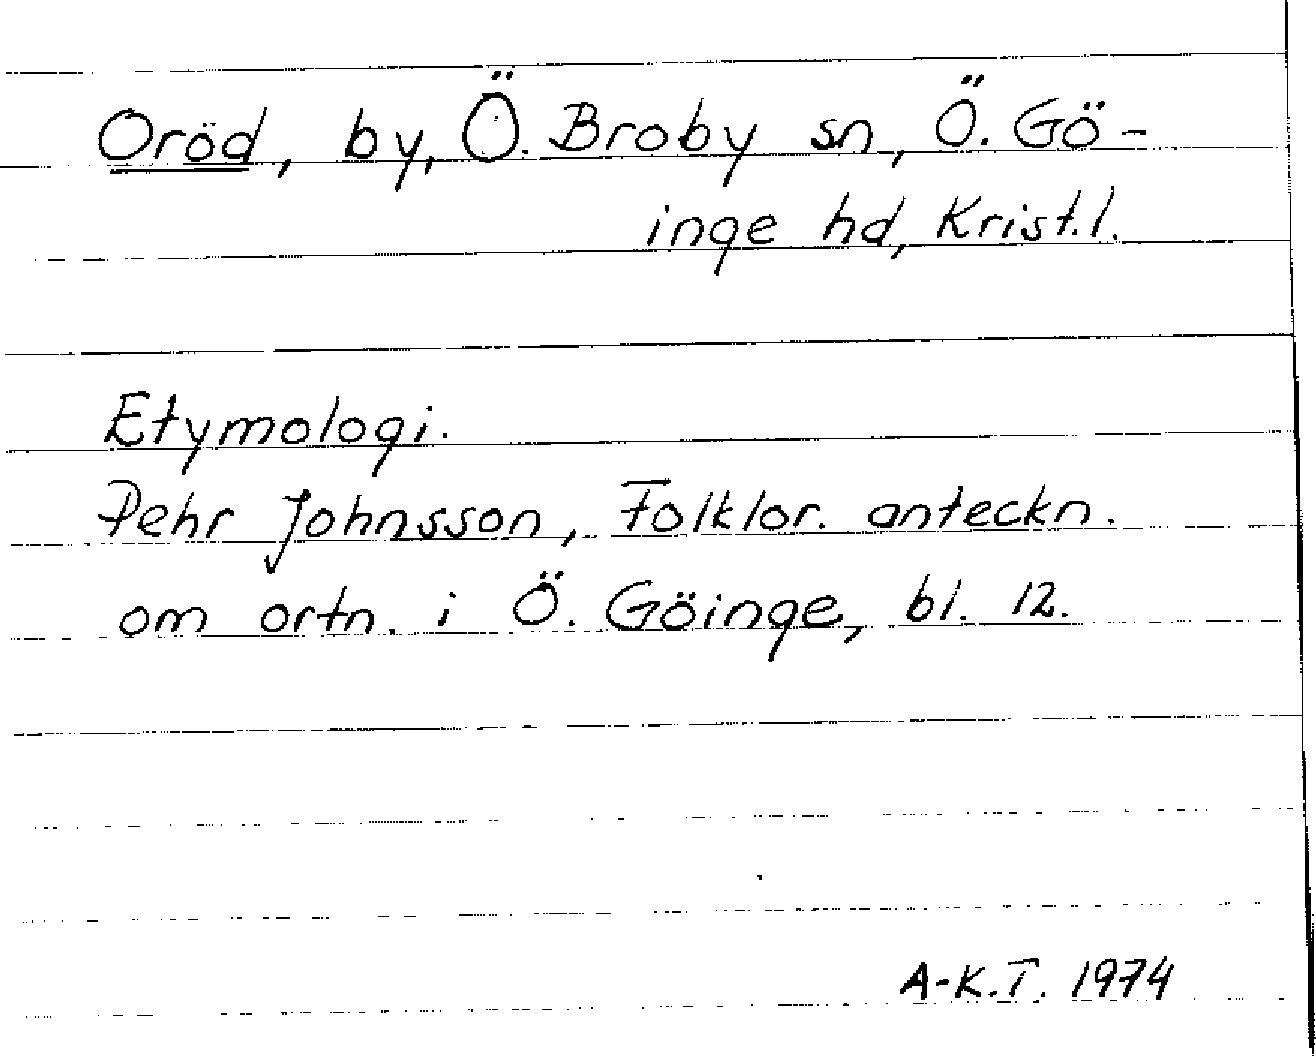 Oröd, by, Ö. Broby sn, Ö. Gö-
inge hd, Krist.l.
Etymologi.
Pehr Johnsson, Folklor. anteckn.
om ortn. i Ö. Göinge, bl. 12.
A-K.T. 1974